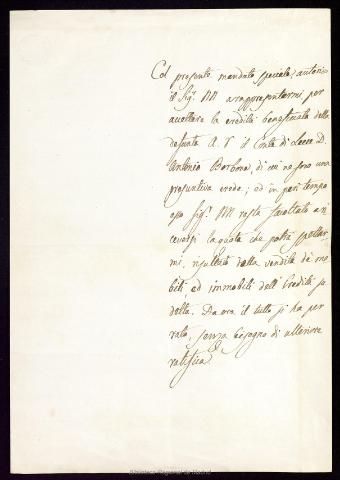 Col presente mandato speciale, autorizo
il Sig.r NN a rappresentarmi per
accettare la eredità beneficiata della
defunta A. R. il Conte di Lecce D.
Antonio Borbone, di cui ne sono una
presuntiva erede; ed in pari tempo
esso Sig.r NN resta facoltato a ri
ceversi la quota che potrà spettar
mi, risultato dalla vendita de' mo
bili, ed immobili dell'Eredità su
detta. Da ora il tutto si ha per
rato, senza bisogno di ulteriore
ratifica.
Biblioteca Regional de Madrid